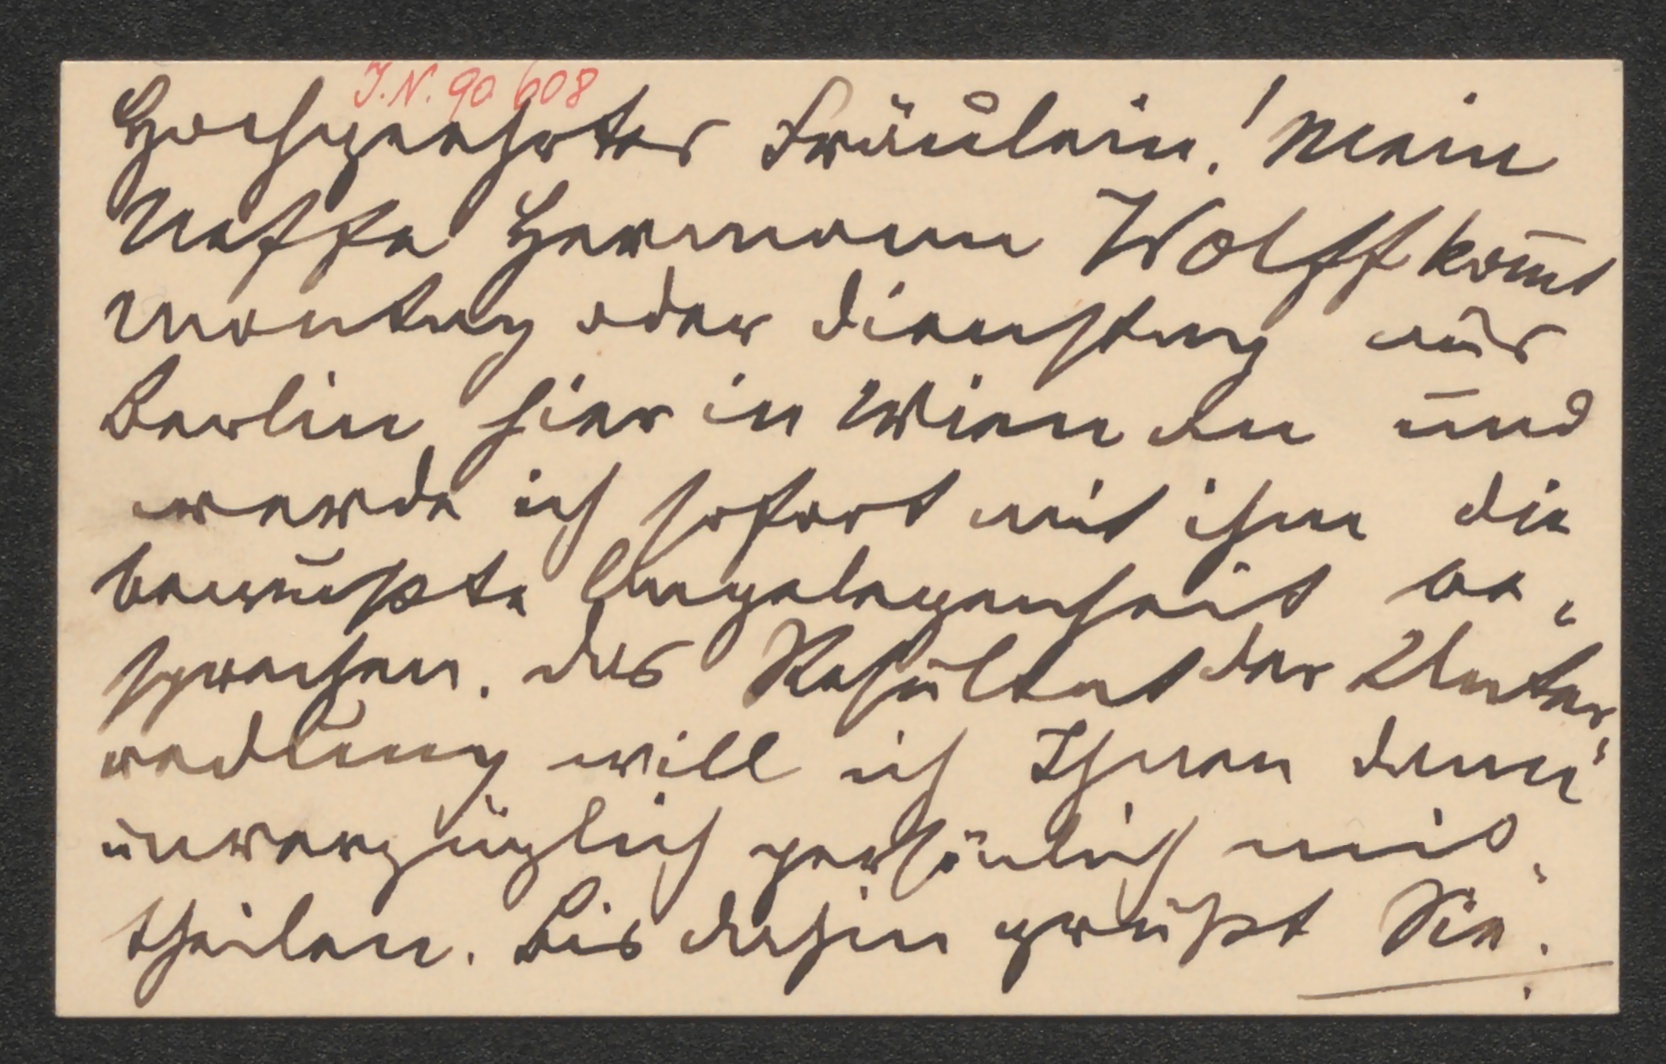 J.N. 90 608
Hochgeehrtes Fräulein! Mein
Neffe Hermann Wolff kom̅t
Montag oder Dienstag aus
Berlin hier in Wien an und
werde ich sofort mit ihm die
bewußte Angelegenheit be„
sprechen. Das Resultat der Unter„
redung will ich Ihnen dann
unverzüglich persönlich mit„
theilen. Bis dahin grüßt Sie: